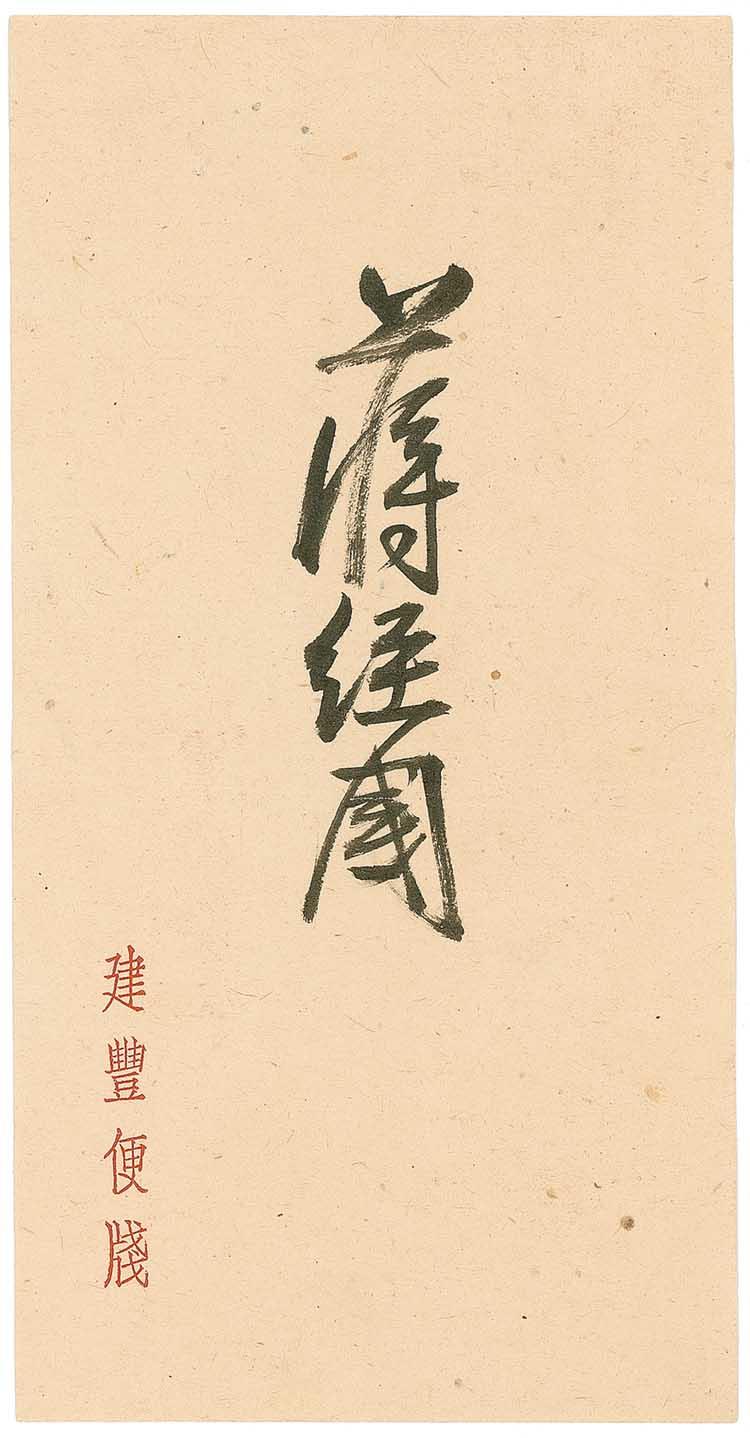 蔣經國
建豐便牋